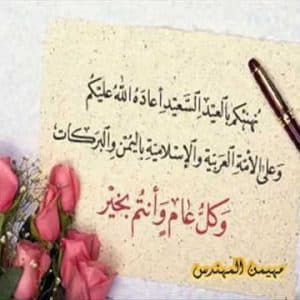 نهنيكم بالعيد السعيد أعاده الله عليكم
وعلى الأمة العربية والإسلامية باليمن والبركات
وكل عام وأنتم بخير
مهيمن المهندس